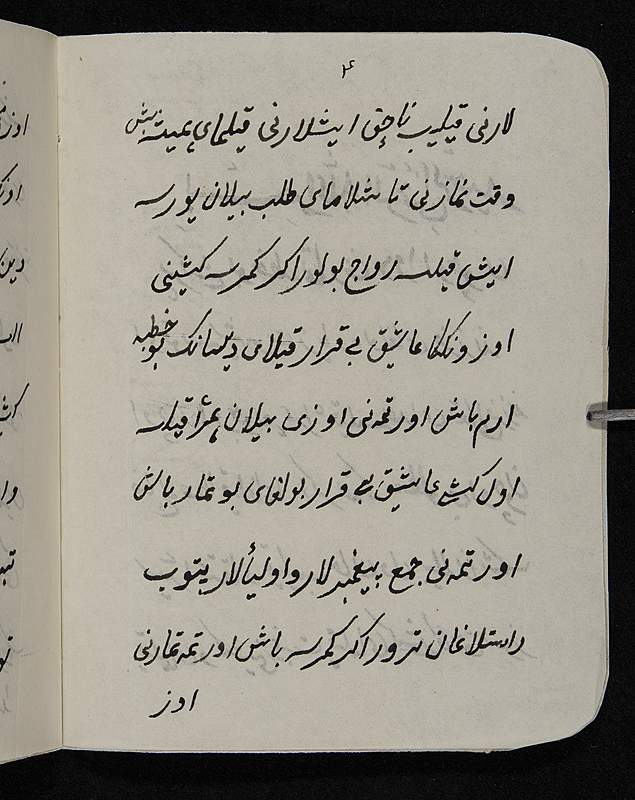 ۴
لارنی قیلیب ناحق ایشلارنی قیلمای همیشه بش
وقت نمازنی تاشلامای طلب بیلان یورسه
ایش قیلسه رواج بولور اکر کمرسه کیشینی
اوزونککا عاشیق بی قرار قیلای دیسانک بو خطبه
ارم باش اورتمه نی اوزی بیلان همرا قیلسه
اول کشی عاشیق بی قرار بولغای بو تمار باش
اورتمه نی جمع پیغمبرلار و اولیألار پتوب
راستلاغان ترور اکر کمرسه باش اورتمه تمارنی
اوز